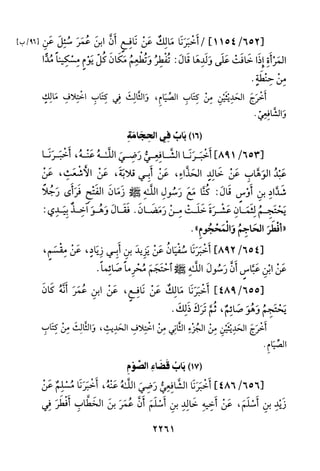 [٦٥٢/ ١١٥٤] / أَخْبَرَنَا مَالِكٌ عَنْ نَافِعٍ أَنَّ ابنَ عُمَرَ سُئِلَ عَنِ [٩٦/ب]
المَرْأَةِ إذَا خَافَتْ عَلَى وَلَدِهَا قَالَ: تُفْطِرُ وَتُطْعِمُ مَكَانَ كُلِّ يَوْمٍ مِسْكِيناً مُدًّا
مِنْ حِنْطَةٍ.
أَخْرَجَ الْحَدِيْثَيْنِ مِنْ كِتَابِ الصِّيَامِ، وَالثَّالِثَ فِي كِتَابِ اخْتِلافِ مَالِكٍ
وَالشَّافِعِيِّ.
(١٦) بَابٌ فِي الحِجَامَةِ
[٦٥٣/ ٨٩١] أَخْبَرَنَا الشَّافِعِيُّ رَضِيَ اللَّهُ عَنْهُ، أَخْبَرَنَا
عَبْدُ الوَهَّابِ عَنْ خَالِدٍ الحَذَّاءِ، عَنْ أَبِي قِلابَةَ، عَنْ أَبِي الأَشْعَثِ، عَنْ
شَدَّادِ بنِ أَوْسٍ قَالَ: كُنَّا مَعَ رَسُولِ اللَّهِ ﷺ زَمَانَ الفَتْحِ فَرَأَى رَجُلاً
يَحْتَجِمُ لِثَمَانِ عَشْرَةَ خَلَتْ مِنْ رَمَضَانَ. فَقَالَ وَهُوَ آخِذٌ بِيَدِي:
«أَفْطَرَ الحَاجِمُ وَالْمَحْجُومُ».
[٦٥٤/ ٨٩٢] أَخْبَرَنَا سُفْيَانُ عَنْ يَزِيدَ بنِ أَبِي زِيَادٍ، عَنْ مِقْسَمٍ،
عَنْ ابْنِ عَبَّاسٍ أَنَّ رَسُولَ اللَّهِ ﷺ احْتَجَمَ مُحْرِماً صَائِماً.
[٦٥٥/ ٤٨٩] أَخْبَرَنَا مَالِكٌ عَنْ نَافِعٍ، عَنْ ابنِ عُمَرَ أَنَّهُ كَانَ
يَحْتَجِمُ وَهُوَ صَائِمٌ، ثُمَّ تَرَكَ ذَلِكَ.
أَخْرَجَ الْحَدِيْثَيْنِ مِنْ الجُزْءِ الثَّانِي مِنْ اخْتِلافِ الحَدِيثِ، وَالثَّالِثَ مِنْ كِتَابِ
الصِّيَامِ.
(١٧) بَابُ قَضَاءِ الصَّوْمِ
[٦٥٦/ ٤٨٦] أَخْبَرَنَا الشَّافِعِيُّ رَضِيَ اللَّهُ عَنْهُ، أَخْبَرَنَا مُسْلِمٌ عَنْ
زَيْدِ بنِ أَسْلَمَ، عَنْ أَخِيهِ خَالِدِ بنِ أَسْلَمَ أَنَّ عُمَرَ بنَ الخَطَّابِ أَفْطَرَ فِي
٢٢٦١